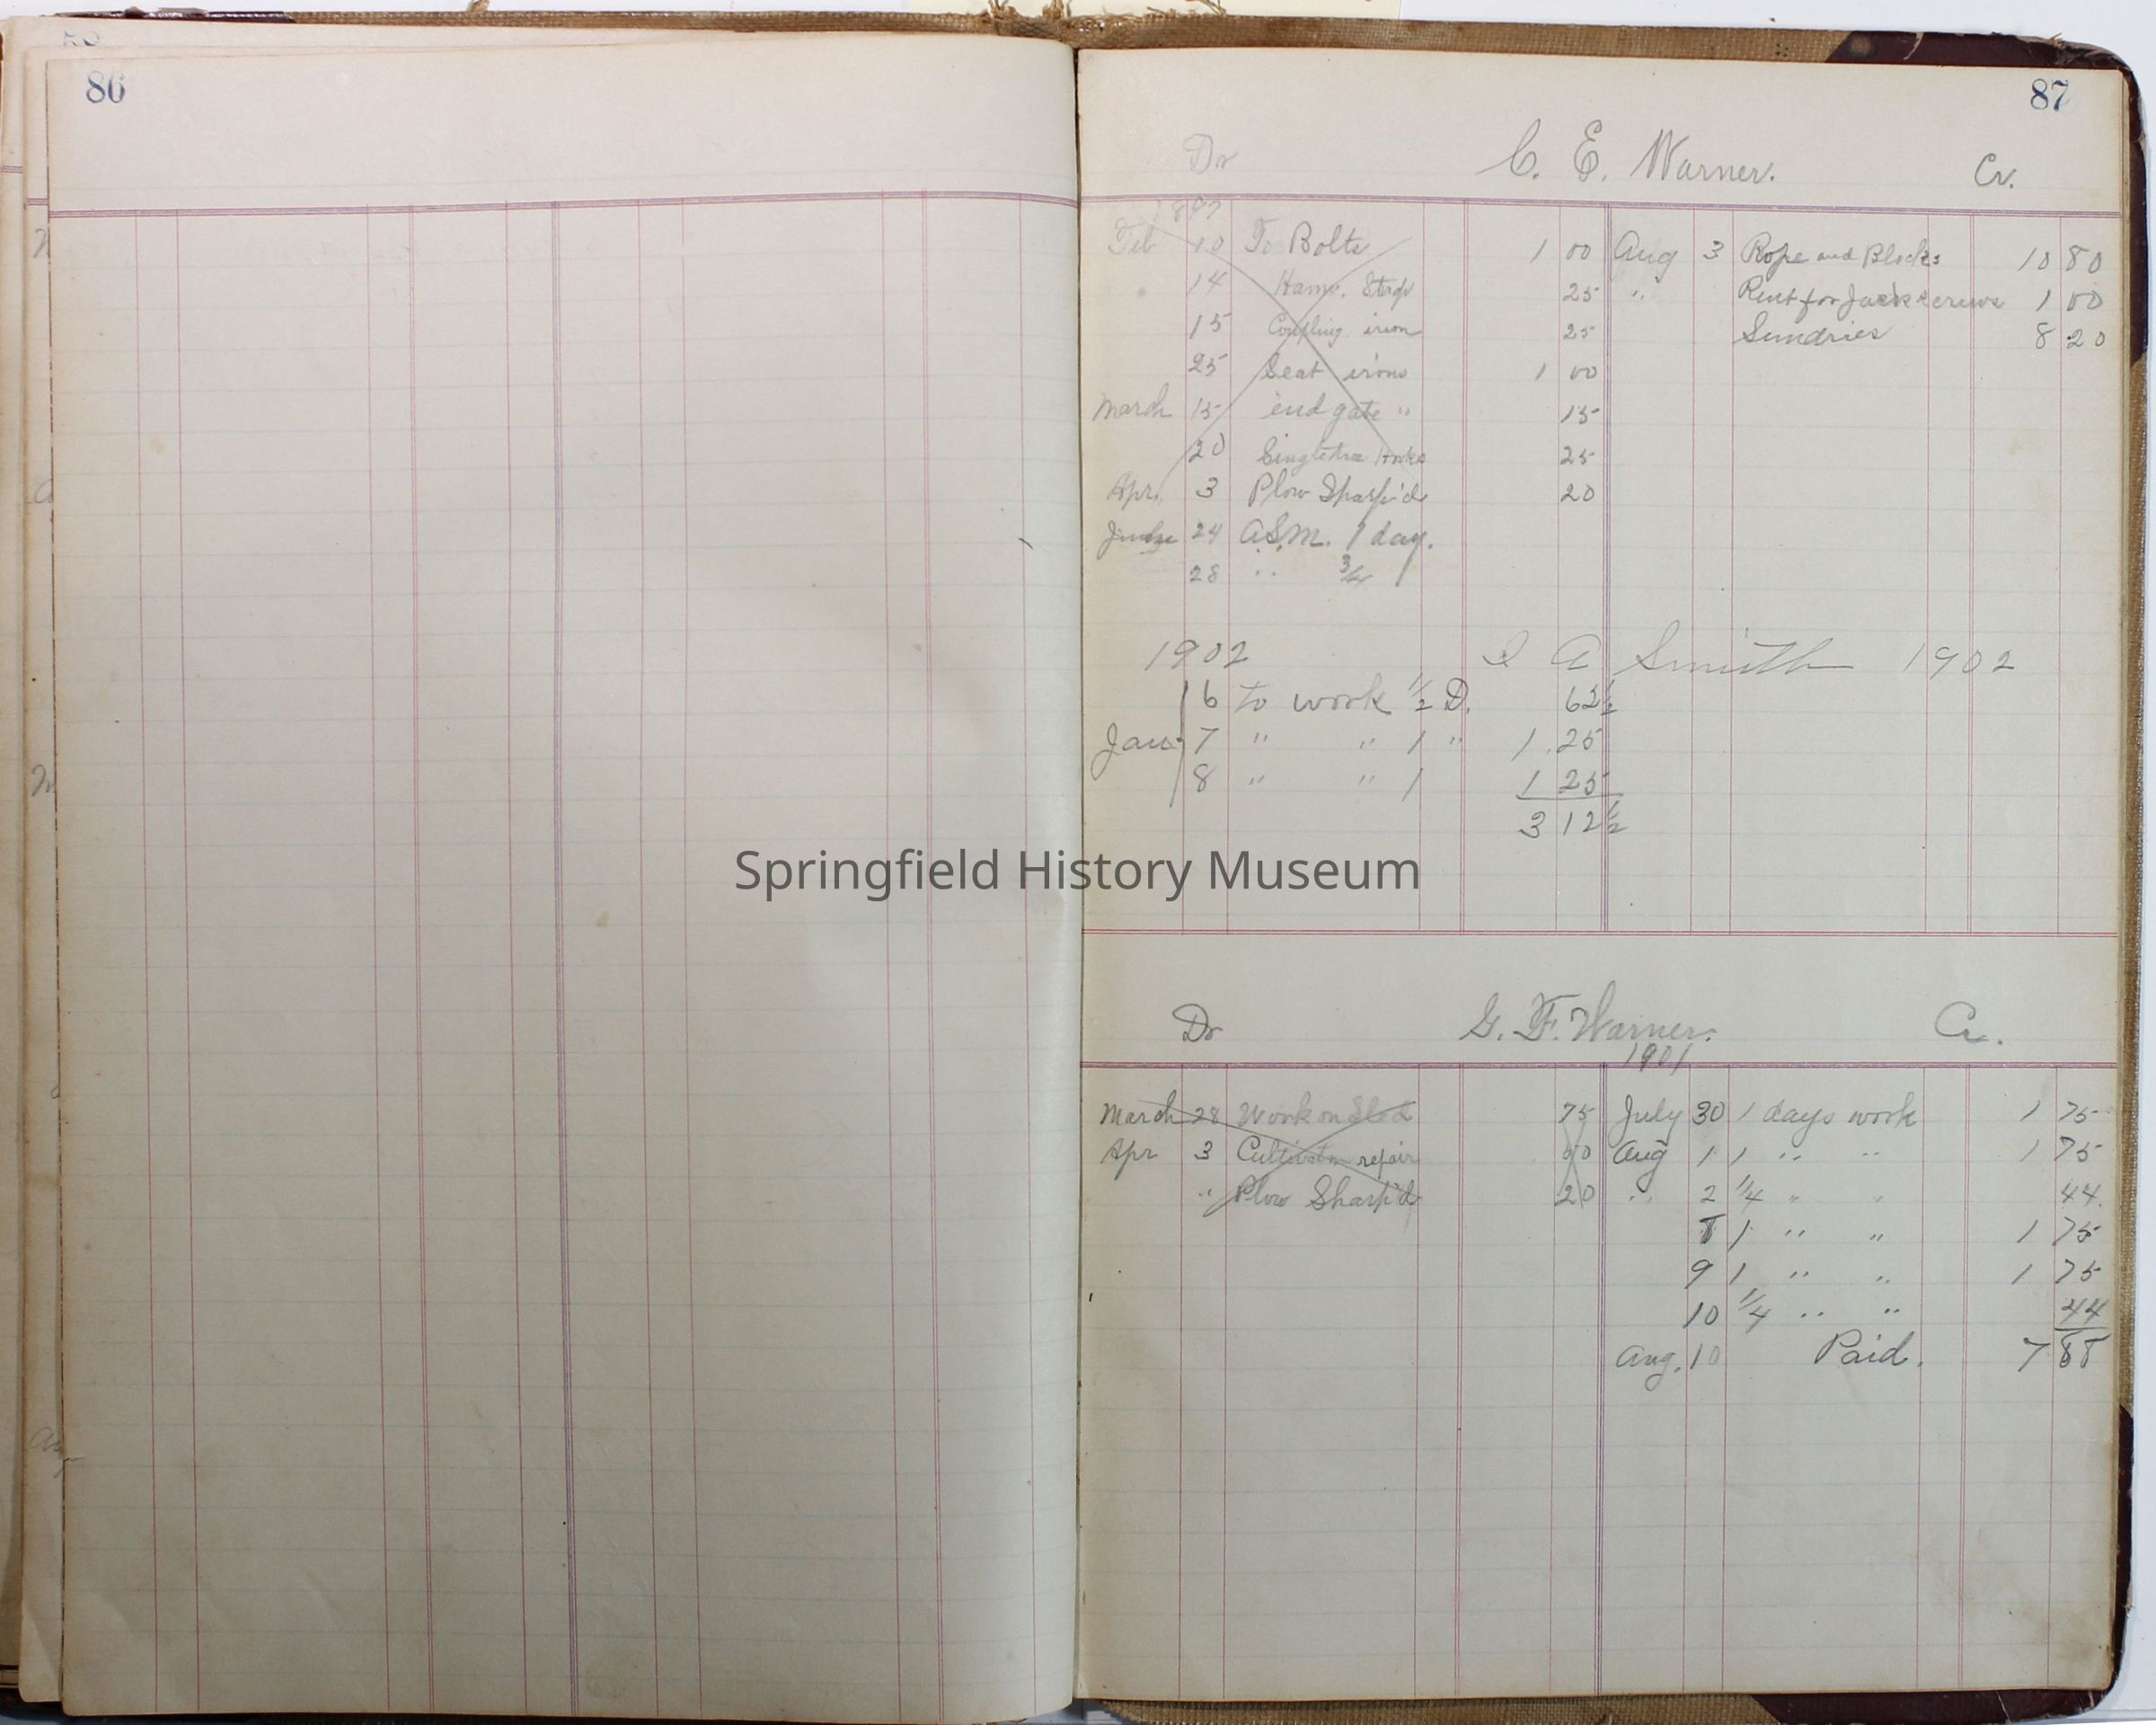 86
87
Dr C. E. Warner. Cr.
1897
Feb 10 To Bolts 1 00 Aug 3 Rope and Blocks 10 80
14 Hame Strap 25 " Rent for Jackscrews 1 00
15 Coupling iron 25 Sundries 8 20
25 Seat irons 1 00
March 15 end gate " 15
20 Singletree hooks 25
Apr. 3 Plow Sharp'd 20
June 24 A.S.M. 1 day.
28 " 3/4
1902 A Smith 1902
6 to work 1/2 D. 62 1/2
Jan. 7 " " 1 " 1 25
8 " " 1 1 25
3 12 1/2
Springfield History Museum
Dr G. F. Warner. Cr.
1901
March 28 Work on Sled 75 July 30 1 days work 1 75
Apr 3 Cultivator repair 50 Aug 1 1 " " 1 75
" Plow Sharp'd 20 " 2 1/4 " " 44
8 1 " " 1 75
9 1 " " 1 75
10 1/4 " " 44
Aug. 10 Paid. 7 88